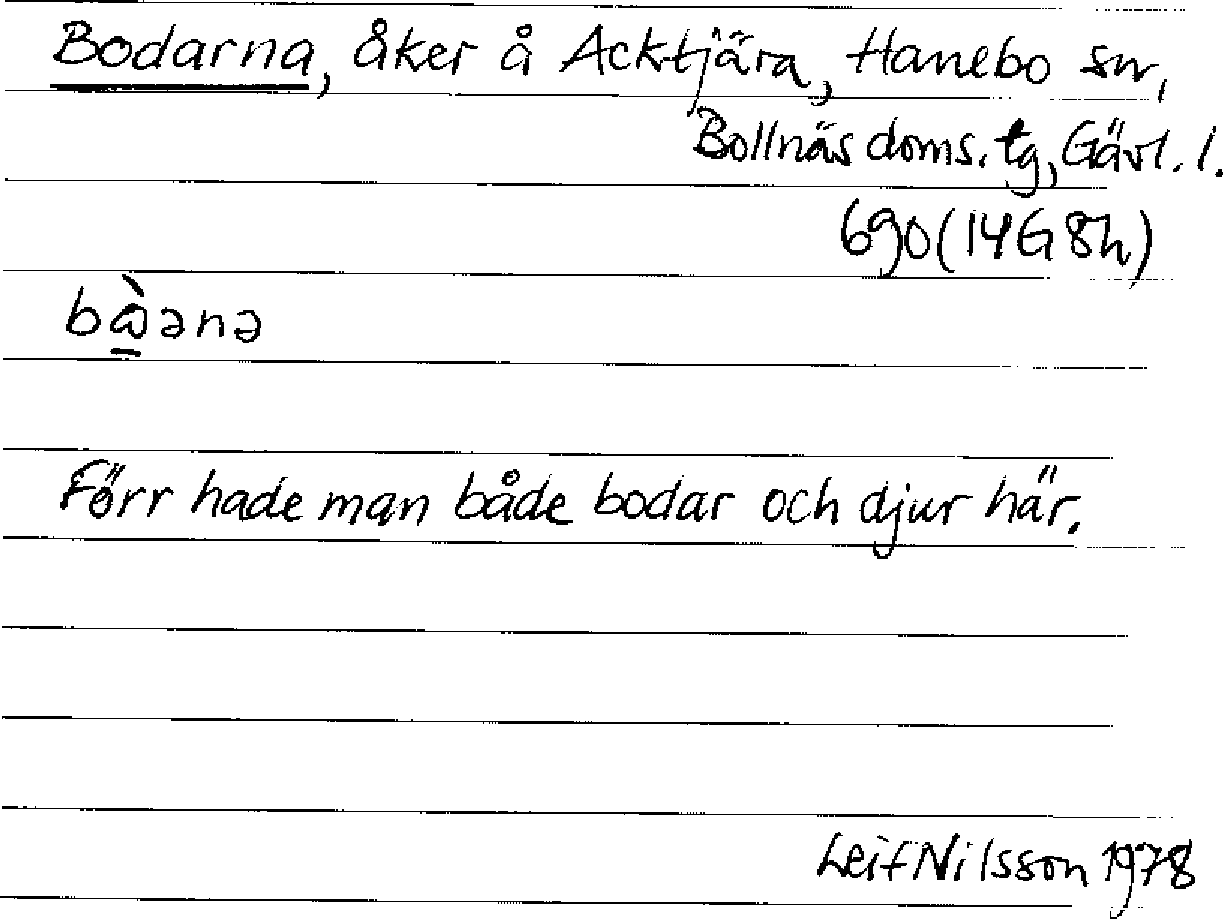 Bodarna, åker å Acktjära, Hanebo sn,
Bollnäs doms. tg, Gävl. l.
690 (14G 8h)
bὼ̱ənə
Förr hade man både bodar och djur här.
Leif Nilsson 1978